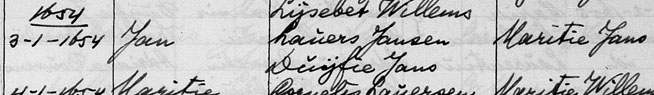 Lijsebet Willems
1654
3-1-1654 Jan Lauers Jansen Maritie Jans
Duijfie Jans
4-1-1654 Maritie Cornelis Lauersen Maritie Willems